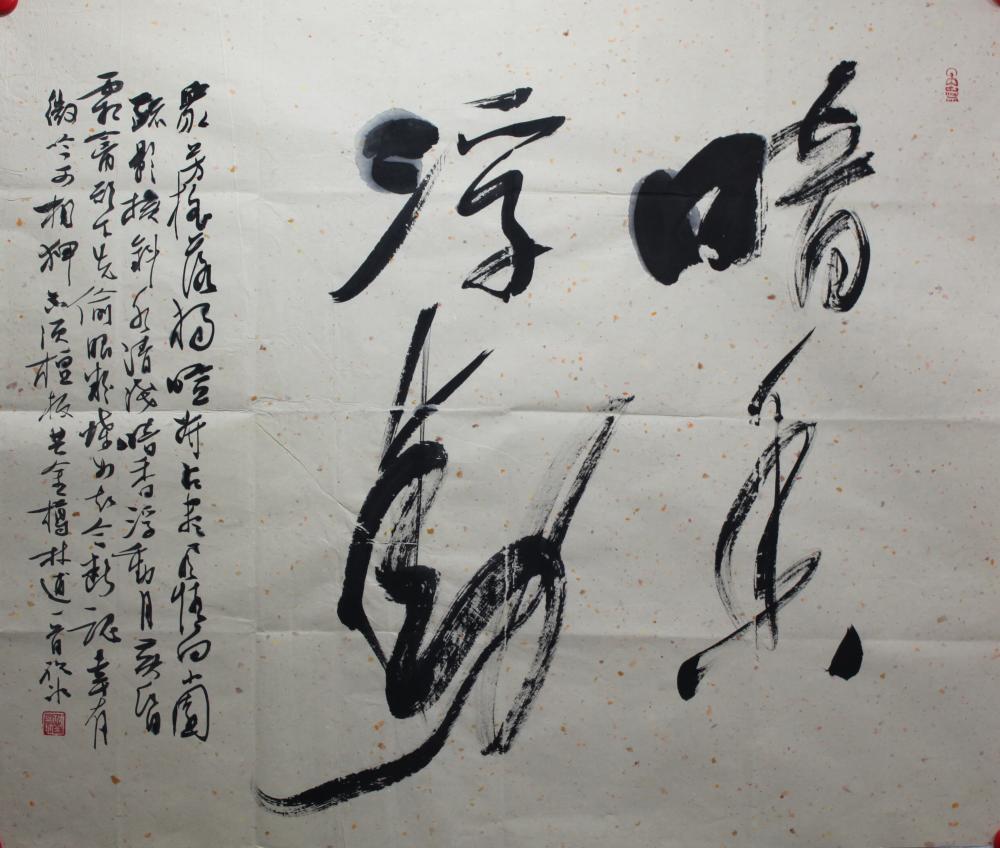 暗香
浮動
眾芳搖落獨暄妍占盡風情向小園
疏影橫斜水清淺暗香浮動月黃昏
霜禽欲下先偷眼粉蝶如知合斷魂幸有
微吟可相狎不須檀板共金樽林逋一首